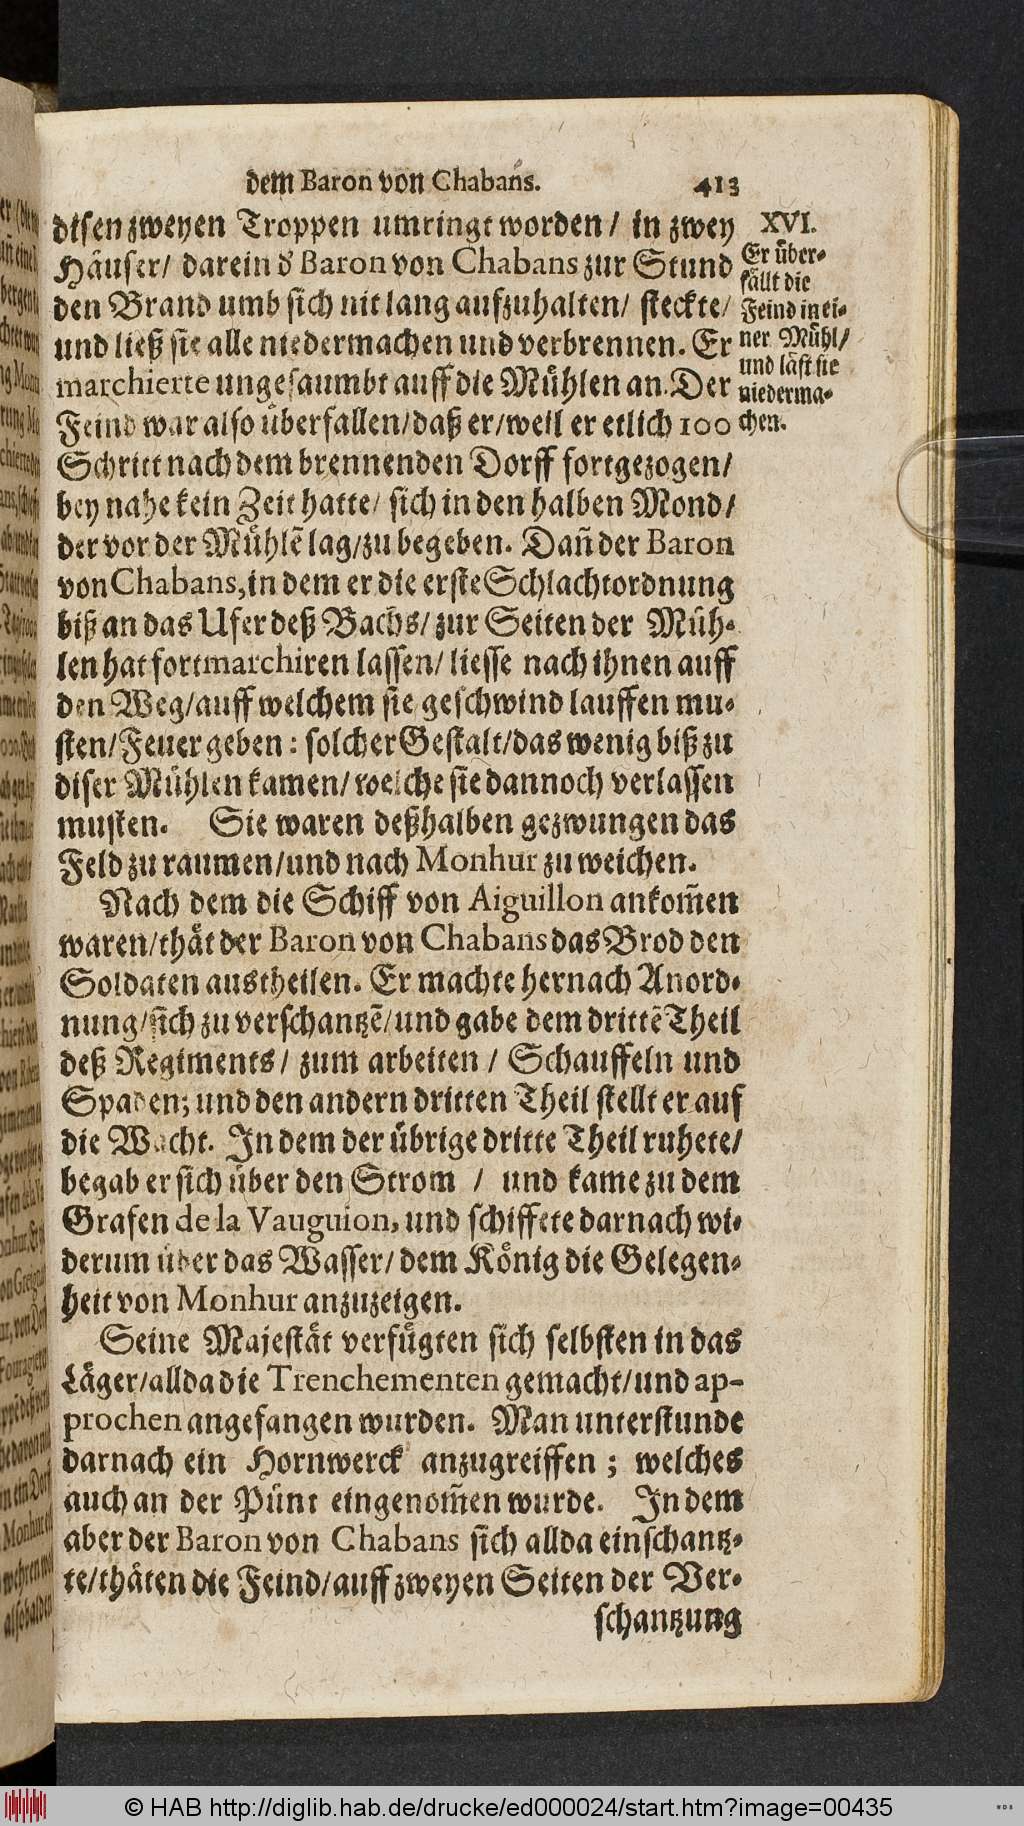 dem Baron von Chabans. 413
disen zweyen Troppen umringt worden / in zwey
Häuser / darein d' Baron von Chabans zur Stund
den Brand umb sich nit lang aufzuhalten / steckte /
und ließ sie alle niedermachen und verbrennen. Er
marchierte ungesaumbt auff die Mühlen an. Der
Feind war also überfallen / daß er / weil er etlich 100
Schritt nach dem brennenden Dorff fortgezogen /
bey nahe kein Zeit hatte / sich in den halben Mond /
der vor der Mühlē lag / zu begeben. Dañ der Baron
von Chabans, in dem er die erste Schlachtordnung
biß an das Ufer deß Bachs / zur Seiten der Müh-
len hat fortmarchiren lassen / liesse nach ihnen auff
den Weg / auff welchem sie geschwind lauffen mu-
sten / Feuer geben : solcher Gestalt / das wenig biß zu
diser Mühlen kamen / welche sie dannoch verlassen
musten. Sie waren deßhalben gezwungen das
Feld zu raumen / und nach Monhur zu weichen.
Nach dem die Schiff von Aiguillon ankom̃en
waren / thät der Baron von Chabans das Brod den
Soldaten austheilen. Er machte hernach Anord-
nung / sich zu verschantzē / und gabe dem drittē Theil
deß Regiments / zum arbeiten / Schauffeln und
Spaden; und den andern dritten Theil stellt er auf
die Wacht. In dem der übrige dritte Theil ruhete /
begab er sich über den Strom / und kame zu dem
Grafen de la Vauguion, und schiffete darnach wi-
derum über das Wasser / dem König die Gelegen-
heit von Monhur anzuzeigen.
Seine Majestät verfügten sich selbsten in das
Läger / allda die Trenchementen gemacht / und ap-
prochen angefangen wurden. Man unterstunde
darnach ein Hornwerck anzugreiffen ; welches
auch an der Pünt eingenom̃en wurde. In dem
aber der Baron von Chabans sich allda einschantz-
te / thäten die Feind / auff zweyen Seiten der Ver-
schantzung
XVI.
Er über-
fällt die
Feind in ei-
ner Mühl /
und läst sie
niederma-
chen.
© HAB http://diglib.hab.de/drucke/ed000024/start.htm?image=00435